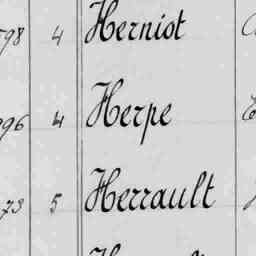 98 4 Herniot
96 4 Herpe
73 5 Herrault